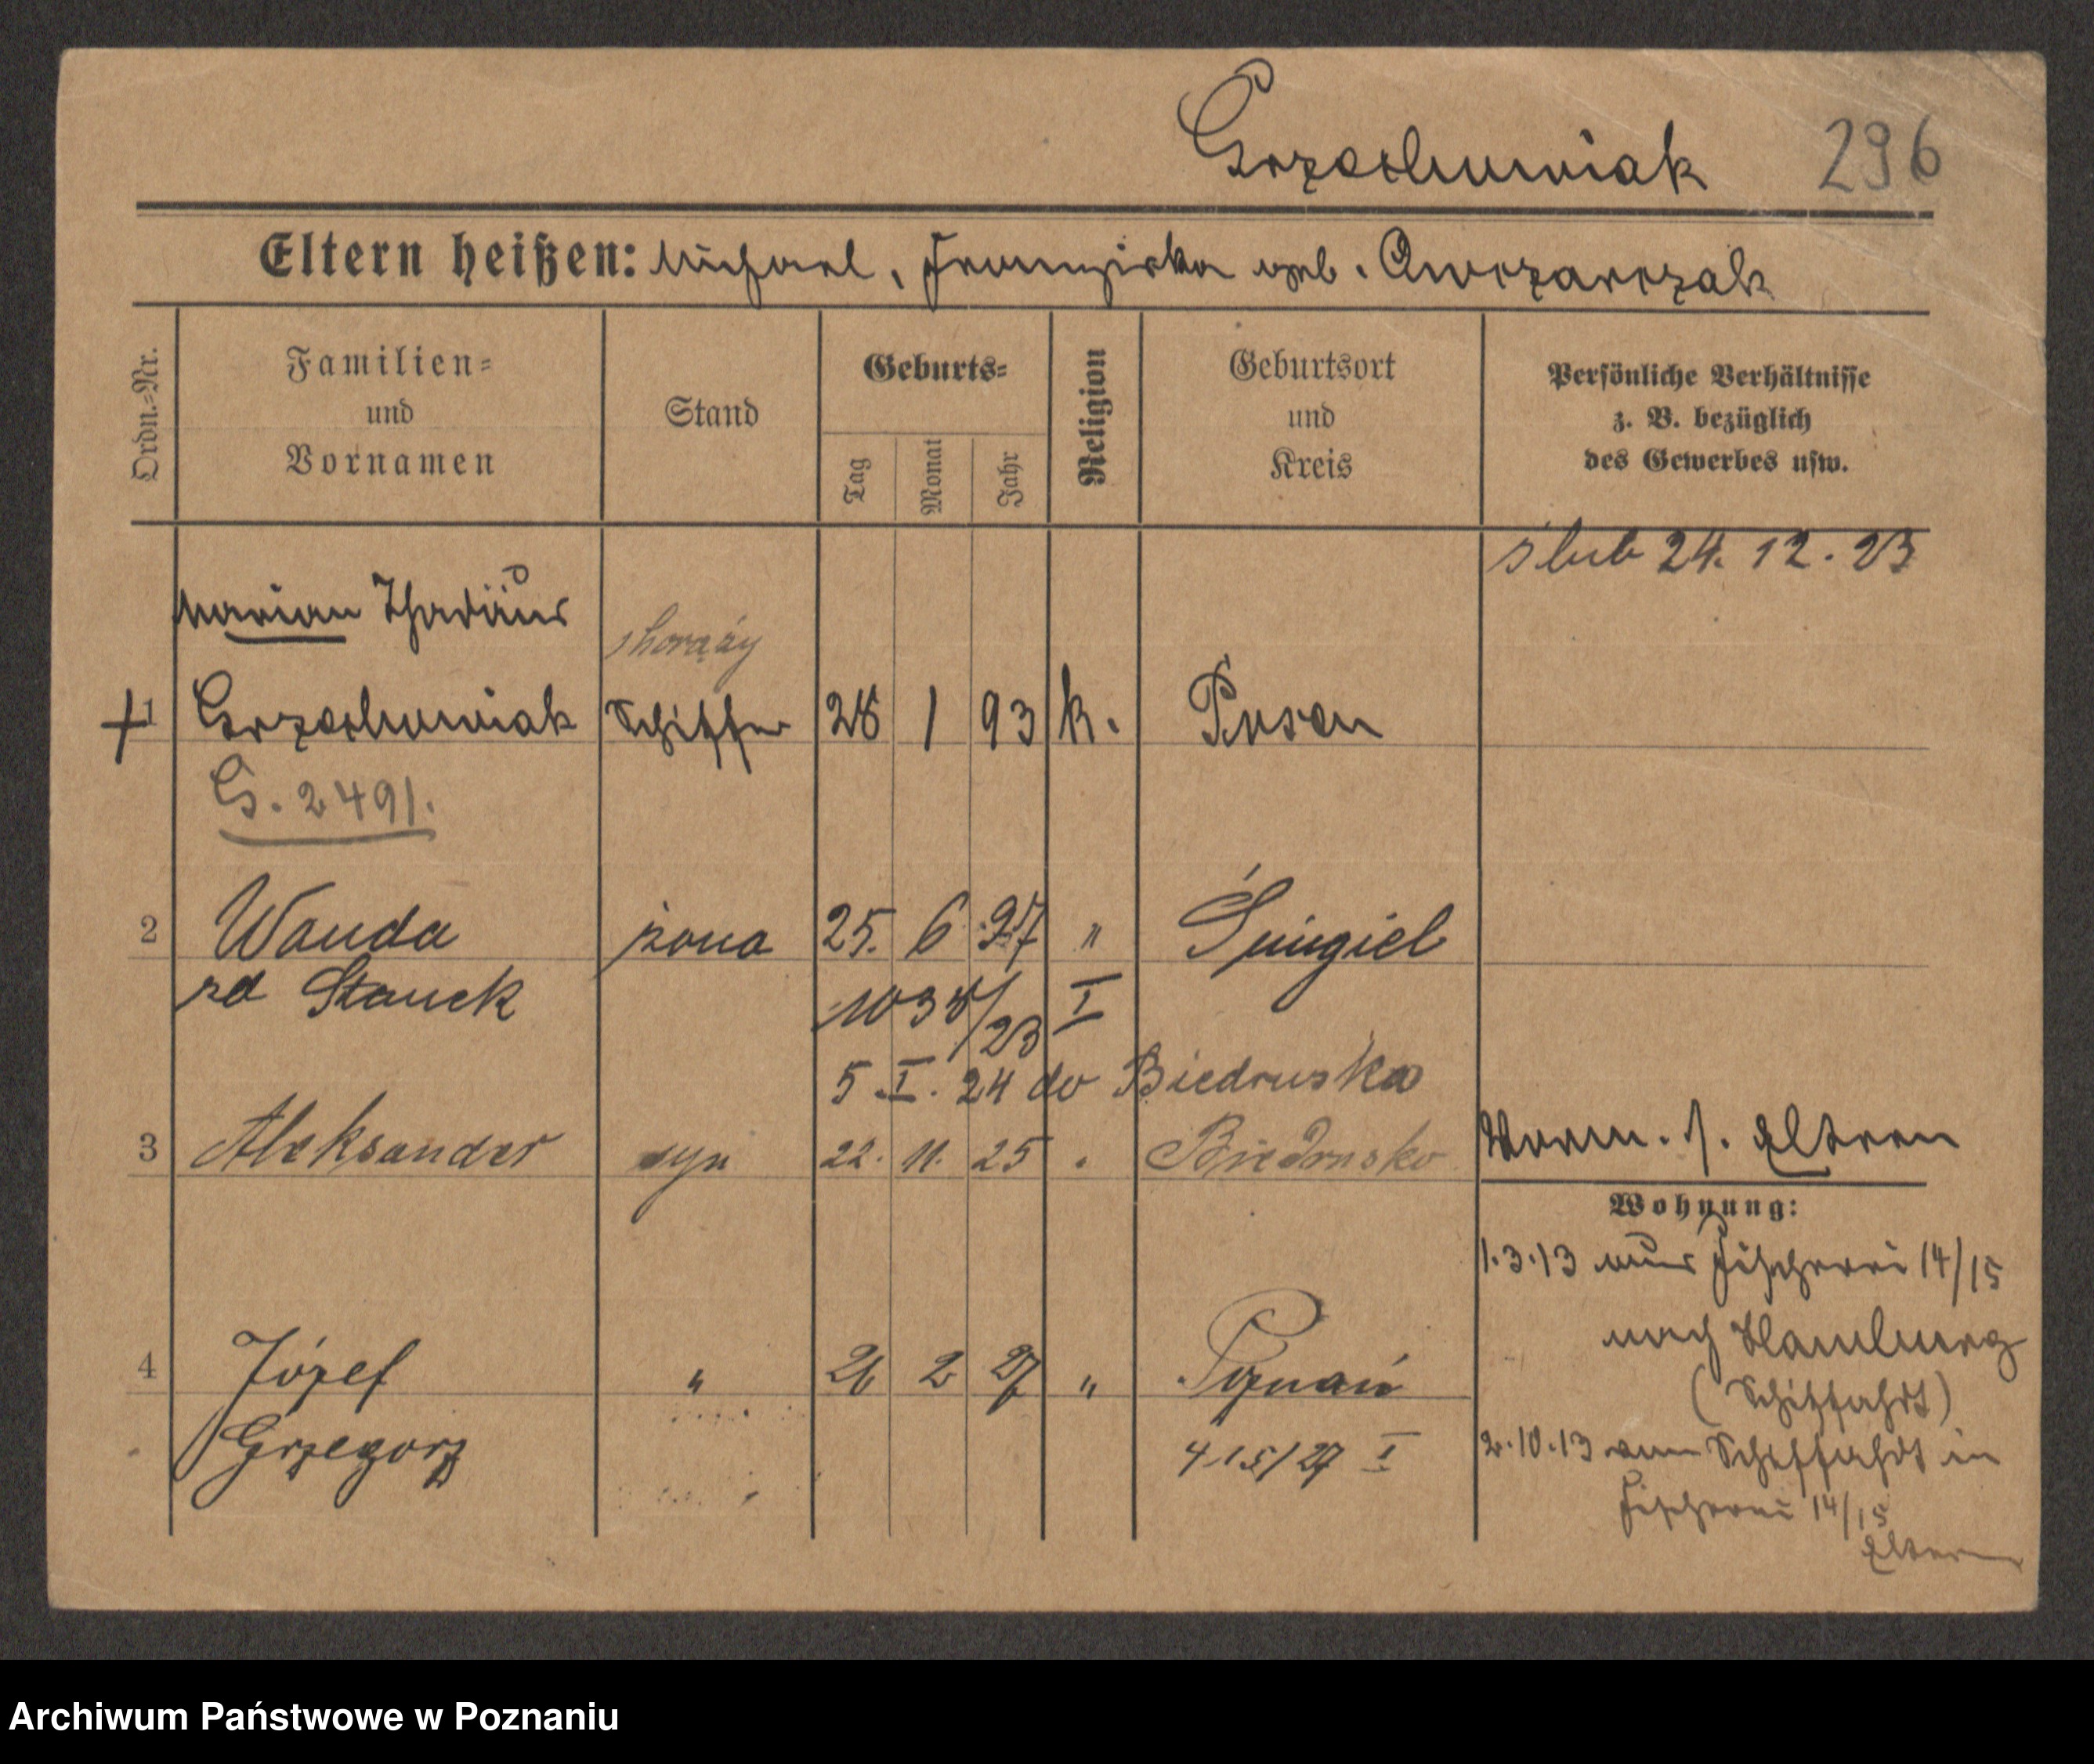 Grzechowiak 296
Eltern heißen: Michael, Franziska geb. Owczarczak
Ordn.=Nr.
Familien=
und
Vornamen
Stand
Geburts=
Tag
Monat
Jahr
Religion
Geburtsort
und
Kreis
Persönliche Verhältnisse
z. B. bezüglich
des Gewerbes usw.
ślub 24. 12. 23
Marian Thadäus
chorąży
1 Grzechowiak Schiffer 28 1 93 k. Posen
G. 2491.
2 Wanda żona 25. 6 97 " Śmigiel
zd Stanek
1038/23 I
5. I. 24 do Biedruska
3 Aleksander syn 22. 11. 25 Biedrusko
Vorm. s. Eltern
Wohnung:
1.3.13 aus Fischerei 14/15
nach Hamburg
(Schiffahrt)
4 Józef " 26 2 27 " Poznań
Grzegorz
415/27 I
2.10.13 von Schiffahrt in
Fischerei 14/15
Eltern
Archiwum Państwowe w Poznaniu